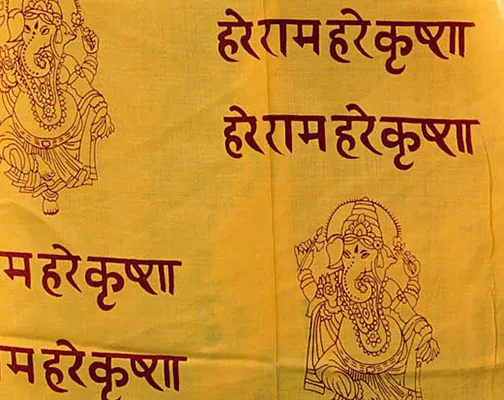 हरे राम हरे कृष्ण
हरे राम हरे कृष्ण
म हरे कृष्ण
म हरे कृष्ण